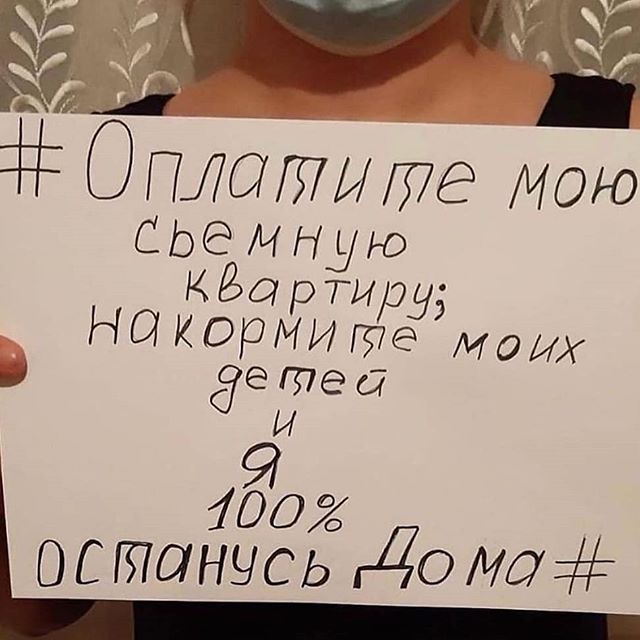 #Оплатите мою
сьемную
квартиру;
накормите моих
детей
и
я
100%
останусь Дома#